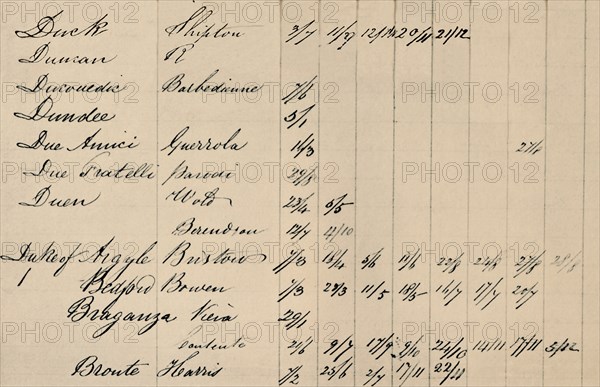 Duck Shipton 3/7 11/27 20/11 21/12
Duncan R
Barbedienne 7/6
Dundee 5/1
Due Amici Guerrola 16/3 27/4
Due Fratelli Parodi 29/8
Duen 23/4 5/5
Berendson 12/7 12/10
Duke of Argyle Bristow 7/3 18/4 5/6 19/6 22/8 27/8 28/8
Bedford Bowen 7/3 24/3 11/5 18/5 16/7 17/7 20/7
Braganza 29/1
21/6 9/7 17/9 9/10 24/10 14/11 17/11 5/12
Bronte Harris 7/2 25/6 2/7 17/11